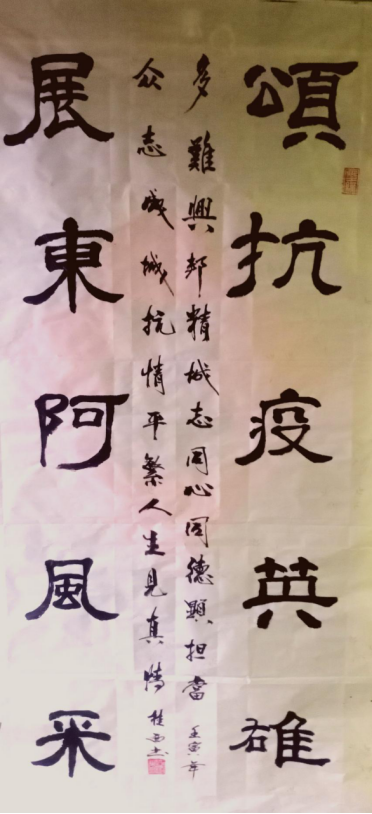 頌抗疫英雄
多難興邦精城志同心同德顯担當 壬寅年
众志成城抗情平繁人生見真情
展東阿風采